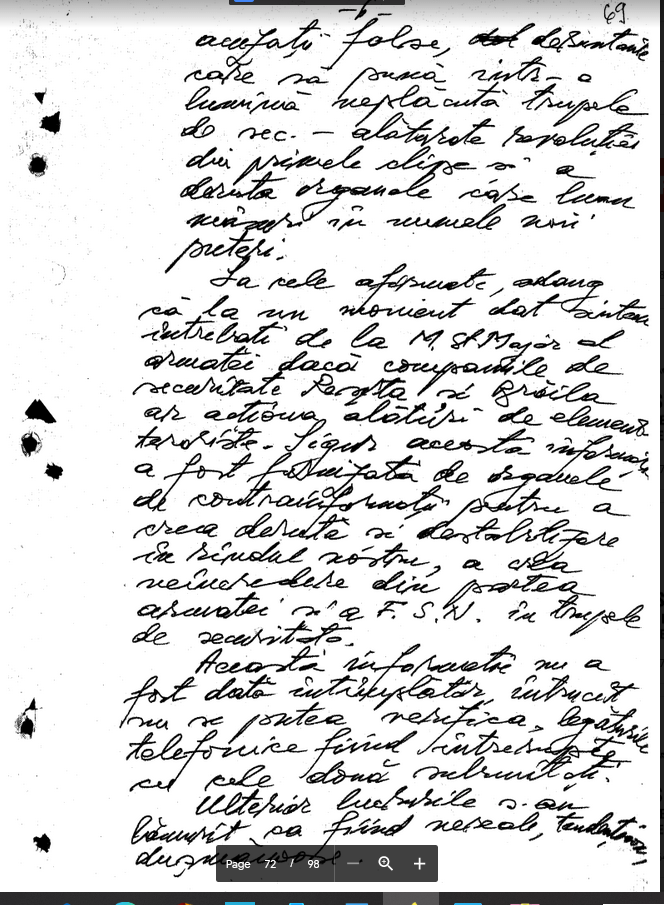 - 6 -
69
acuzații false, derutante
care să pună intr-o
lumină neplăcută trupele
de sec. - alăturate revoluției
din primele clipe și a
deruta organele care luau
măsuri în numele noii
puteri.
La cele afirmate, adaug
că la un moment dat sîntem
întrebați de la M. St. Major al
armatei dacă companiile de
securitate Reșița și Brăila
ar acționa alături de elemente
teroriste. Sigur această informație
a fost furnizată de organele
de contrainformații pentru a
crea derută și destabilizare
în rîndul nostru, a crea
neîncredere din partea
armatei și a F.S.N. în trupele
de securitate.
Această informație nu a
fost dată întîmplător, întrucît
nu se putea verifica, legăturile
telefonice fiind întrerupte
cu cele două subunități.
Ulterior lucrurile s-au
lămurit ca fiind nereale, tendențioase,
dușmănoase.
Page 72 / 98